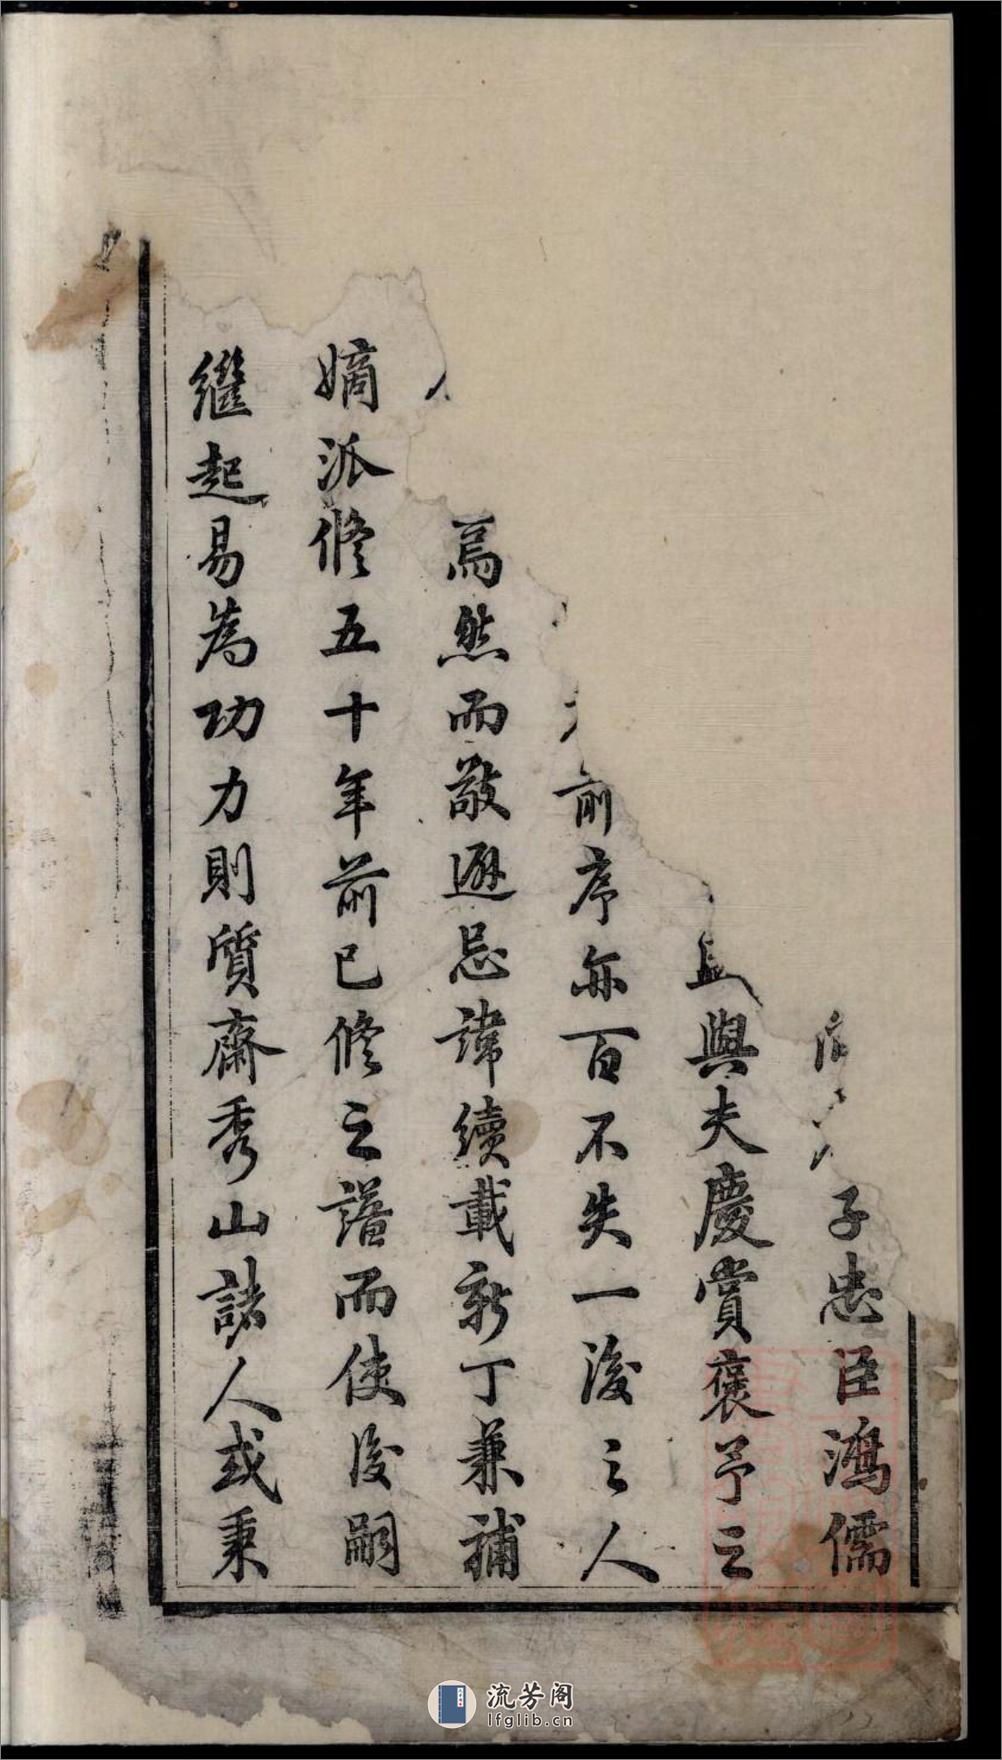 子忠臣鴻儒
與夫慶賞褒予之
前序亦百不失一後之人
焉然而敬避忌諱續載新丁兼補
嫡派修五十年前已修之譜而使後嗣
繼起易為功力則質齋秀山諸人或秉
流芳阁
lfglib.cn